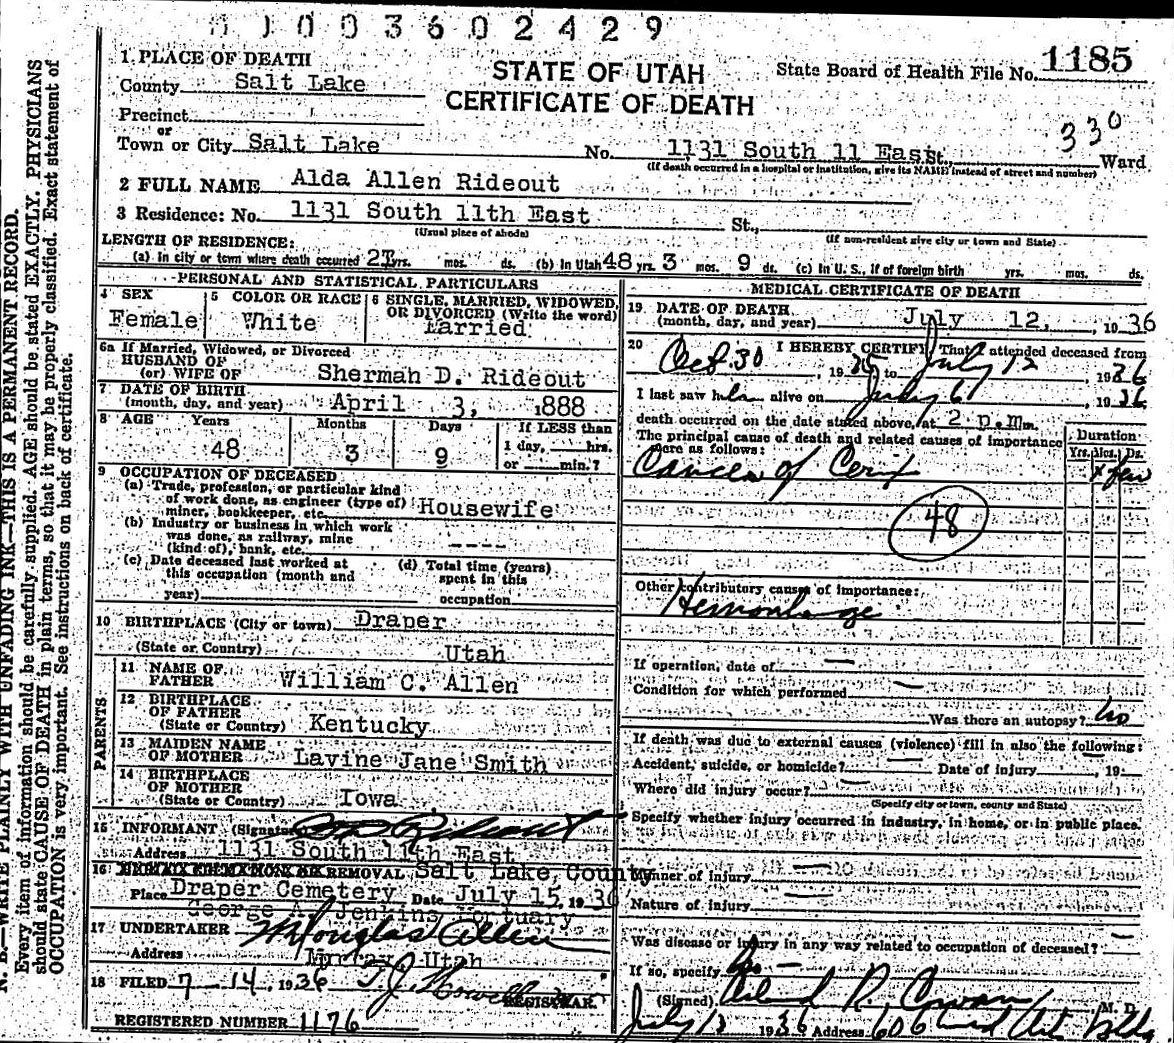 1003602429
1 PLACE OF DEATH
STATE OF UTAH
CERTIFICATE OF DEATH
State Board of Health File No. 1185
County Salt Lake
Precinct
or
Town or City Salt Lake No. 1131 South 11 East St., 330 Ward
(If death occurred in a hospital or institution, give its NAME instead of street and number)
2 FULL NAME Alda Allen Rideout
3 Residence: No. 1131 South 11th East St.,
(Usual place of abode) (If non-resident give city or town and State)
LENGTH OF RESIDENCE:
(a) In city or town where death occurred 27 yrs. mos. ds. (b) In Utah 48 yrs. 3 mos. 9 ds. (c) In U. S., if of foreign birth yrs. mos. ds.
PERSONAL AND STATISTICAL PARTICULARS
4 SEX Female
5 COLOR OR RACE White
6 SINGLE, MARRIED, WIDOWED, OR DIVORCED (Write the word) Married
6a If Married, Widowed, or Divorced
HUSBAND OF
(or) WIFE OF Sherman D. Rideout
7 DATE OF BIRTH
(month, day, and year) April 3, 1888
8 AGE Years Months Days If LESS than
48 3 9 1 day, hrs.
or min.?
9 OCCUPATION OF DECEASED
(a) Trade, profession, or particular kind
of work done, as engineer (type of)
miner, bookkeeper, etc. Housewife
(b) Industry or business in which work
was done, as railway, mine
(kind of), bank, etc. ----
(c) Date deceased last worked at
this occupation (month and
year)
(d) Total time (years)
spent in this
occupation
10 BIRTHPLACE (City or town) Draper
(State or Country) Utah
PARENTS
11 NAME OF
FATHER William C. Allen
12 BIRTHPLACE
OF FATHER
(State or Country) Kentucky
13 MAIDEN NAME
OF MOTHER Lavine Jane Smith
14 BIRTHPLACE
OF MOTHER
(State or Country) Iowa
15 INFORMANT (Signature) Rideout
Address 1131 South 11th East
16 REMOVAL Salt Lake, County
Place Draper Cemetery Date July 15, 1936
George A. Jenkins Mortuary
17 UNDERTAKER M Douglas Allen
Address Murray, Utah
18 FILED 7-14, 1936 T. J. Howells
REGISTRAR.
REGISTERED NUMBER 1176
MEDICAL CERTIFICATE OF DEATH
19 DATE OF DEATH
(month, day, and year) July 12, 1936
20 I HEREBY CERTIFY, That I attended deceased from
Oct. 30, 1935 to July 12, 1936
I last saw her alive on July 6, 1936
death occurred on the date stated above, at 2 p.m.
The principal cause of death and related causes of importance
were as follows: Duration
Yrs. Mos. Ds.
Cancer of Cerix
48
Other contributory causes of importance:
Hemorrhage
If operation, date of —
Condition for which performed —
Was there an autopsy? No
If death was due to external causes (violence) fill in also the following:
Accident, suicide, or homicide? — Date of injury , 19
Where did injury occur? —
(Specify city or town, county and State)
Specify whether injury occurred in industry, in home, or in public place.
Manner of injury —
Nature of injury —
Was disease or injury in any way related to occupation of deceased? —
If so, specify
(Signed) R. Cowan M. D.
July 12 1936 Address 606 Med Arts Bldg
N. B.—WRITE PLAINLY WITH UNFADING INK—THIS IS A PERMANENT RECORD.
Every item of information should be carefully supplied. AGE should be stated EXACTLY. PHYSICIANS
should state CAUSE OF DEATH in plain terms, so that it may be properly classified. Exact statement of
OCCUPATION is very important. See instructions on back of certificate.